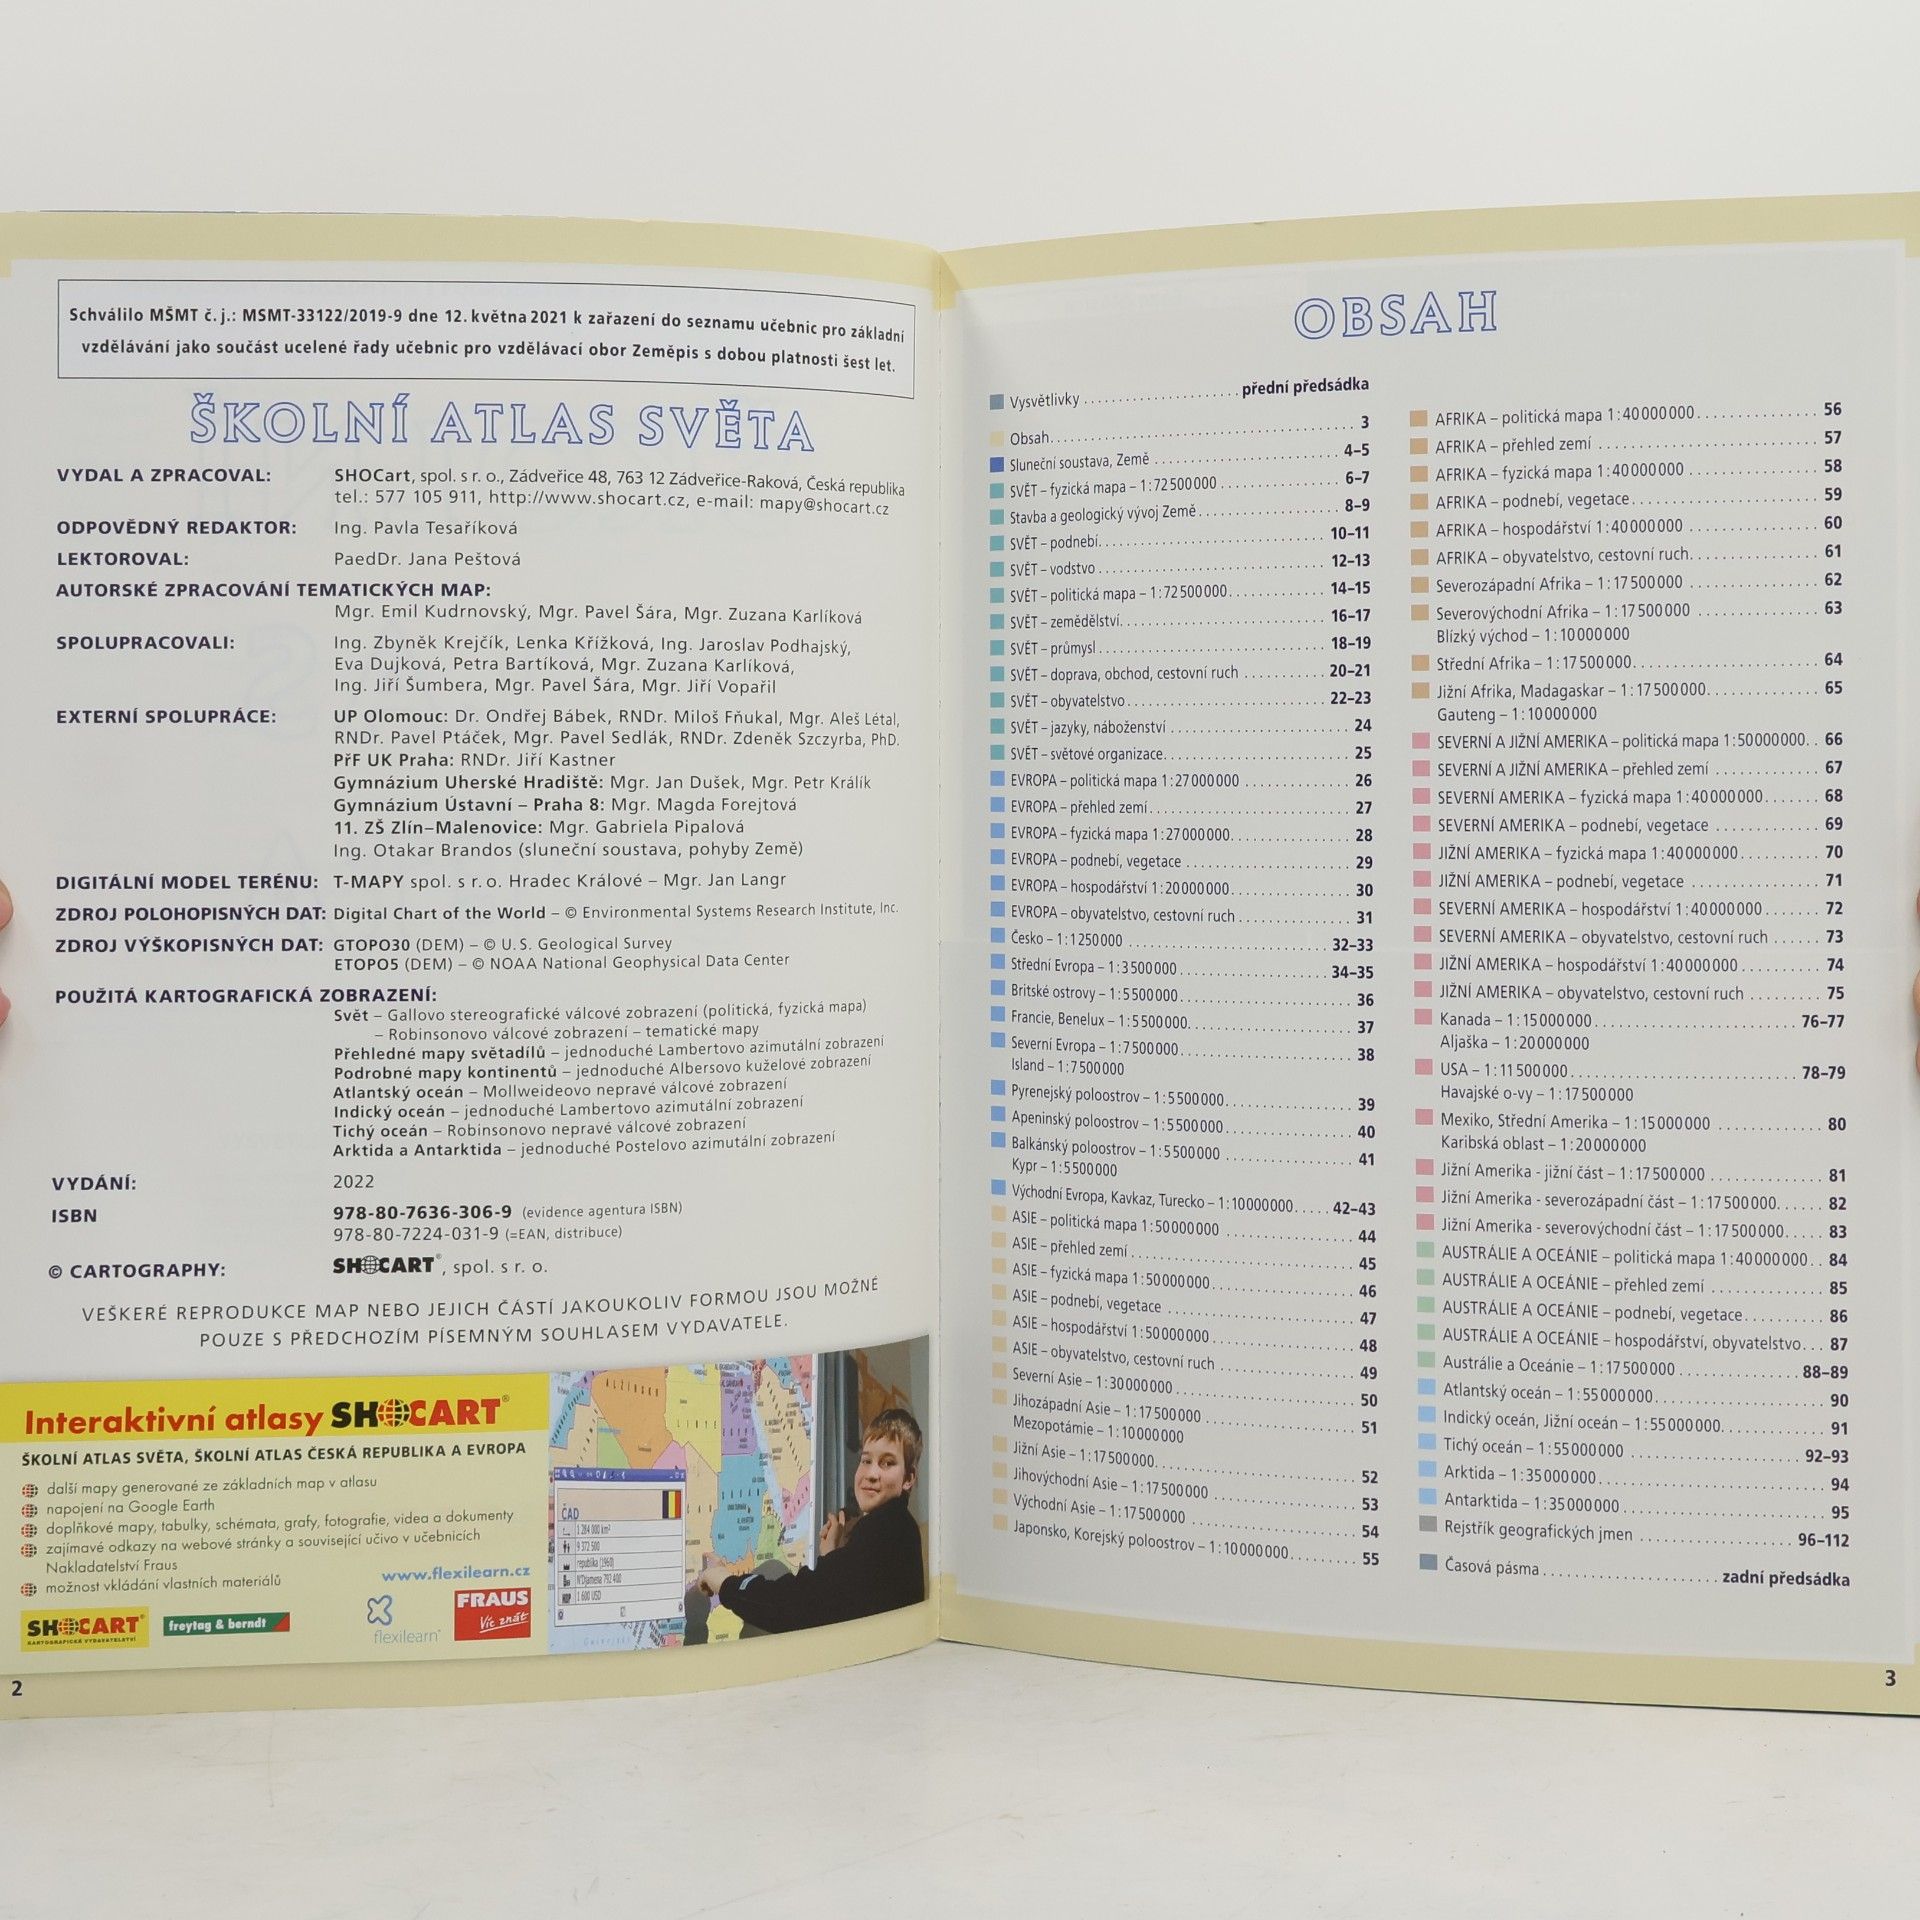 Schválilo MŠMT č. j.: MSMT-33122/2019-9 dne 12. května 2021 k zařazení do seznamu učebnic pro základní
vzdělávání jako součást ucelené řady učebnic pro vzdělávací obor Zeměpis s dobou platnosti šest let.
ŠKOLNÍ ATLAS SVĚTA
VYDAL A ZPRACOVAL: SHOCart, spol. s r. o., Zádveřice 48, 763 12 Zádveřice-Raková, Česká republika
tel.: 577 105 911, http://www.shocart.cz, e-mail: mapy@shocart.cz
ODPOVĚDNÝ REDAKTOR: Ing. Pavla Tesaříková
LEKTOROVAL: PaedDr. Jana Peštová
AUTORSKÉ ZPRACOVÁNÍ TEMATICKÝCH MAP:
Mgr. Emil Kudrnovský, Mgr. Pavel Šára, Mgr. Zuzana Karlíková
SPOLUPRACOVALI: Ing. Zbyněk Krejčík, Lenka Křížková, Ing. Jaroslav Podhajský,
Eva Dujková, Petra Bartíková, Mgr. Zuzana Karlíková,
Ing. Jiří Šumbera, Mgr. Pavel Šára, Mgr. Jiří Vopařil
EXTERNÍ SPOLUPRÁCE: UP Olomouc: Dr. Ondřej Bábek, RNDr. Miloš Fňukal, Mgr. Aleš Létal,
RNDr. Pavel Ptáček, Mgr. Pavel Sedlák, RNDr. Zdeněk Szczyrba, PhD.
PřF UK Praha: RNDr. Jiří Kastner
Gymnázium Uherské Hradiště: Mgr. Jan Dušek, Mgr. Petr Králík
Gymnázium Ústavní – Praha 8: Mgr. Magda Forejtová
11. ZŠ Zlín–Malenovice: Mgr. Gabriela Pipalová
Ing. Otakar Brandos (sluneční soustava, pohyby Země)
DIGITÁLNÍ MODEL TERÉNU: T-MAPY spol. s r. o. Hradec Králové – Mgr. Jan Langr
ZDROJ POLOHOPISNÝCH DAT: Digital Chart of the World – © Environmental Systems Research Institute, Inc.
ZDROJ VÝŠKOPISNÝCH DAT: GTOPO30 (DEM) – © U. S. Geological Survey
ETOPO5 (DEM) – © NOAA National Geophysical Data Center
POUŽITÁ KARTOGRAFICKÁ ZOBRAZENÍ:
Svět – Gallovo stereografické válcové zobrazení (politická, fyzická mapa)
– Robinsonovo válcové zobrazení – tematické mapy
Přehledné mapy světadílů – jednoduché Lambertovo azimutální zobrazení
Podrobné mapy kontinentů – jednoduché Albersovo kuželové zobrazení
Atlantský oceán – Mollweideovo nepravé válcové zobrazení
Indický oceán – jednoduché Lambertovo azimutální zobrazení
Tichý oceán – Robinsonovo nepravé válcové zobrazení
Arktida a Antarktida – jednoduché Postelovo azimutální zobrazení
VYDÁNÍ: 2022
ISBN 978-80-7636-306-9 (evidence agentura ISBN)
978-80-7224-031-9 (=EAN, distribuce)
© CARTOGRAPHY: SHOCART®, spol. s r. o.
VEŠKERÉ REPRODUKCE MAP NEBO JEJICH ČÁSTÍ JAKOUKOLIV FORMOU JSOU MOŽNÉ
POUZE S PŘEDCHOZÍM PÍSEMNÝM SOUHLASEM VYDAVATELE.
Interaktivní atlasy SHOCART®
ŠKOLNÍ ATLAS SVĚTA, ŠKOLNÍ ATLAS ČESKÁ REPUBLIKA A EVROPA
další mapy generované ze základních map v atlasu
napojení na Google Earth
doplňkové mapy, tabulky, schémata, grafy, fotografie, videa a dokumenty
zajímavé odkazy na webové stránky a související učivo v učebnicích
Nakladatelství Fraus
možnost vkládání vlastních materiálů
www.flexilearn.cz
SHOCART®
KARTOGRAFICKÁ VYDAVATELSTVÍ
freytag & berndt
flexilearn®
FRAUS
Víc znát
ALŽÍRSKO
ČAD
1 284 000 km²
9 372 500
republika (1960)
N'Djamena 792 400
1 600 USD
2
OBSAH
Vysvětlivky . . . přední předsádka
Obsah . . . 3
Sluneční soustava, Země . . . 4–5
SVĚT – fyzická mapa – 1:72500000 . . . 6–7
Stavba a geologický vývoj Země . . . 8–9
SVĚT – podnebí . . . 10–11
SVĚT – vodstvo . . . 12–13
SVĚT – politická mapa – 1:72500000 . . . 14–15
SVĚT – zemědělství . . . 16–17
SVĚT – průmysl . . . 18–19
SVĚT – doprava, obchod, cestovní ruch . . . 20–21
SVĚT – obyvatelstvo . . . 22–23
SVĚT – jazyky, náboženství . . . 24
SVĚT – světové organizace . . . 25
EVROPA – politická mapa 1:27000000 . . . 26
EVROPA – přehled zemí . . . 27
EVROPA – fyzická mapa 1:27000000 . . . 28
EVROPA – podnebí, vegetace . . . 29
EVROPA – hospodářství 1:20000000 . . . 30
EVROPA – obyvatelstvo, cestovní ruch . . . 31
Česko – 1:1250000 . . . 32–33
Střední Evropa – 1:3500000 . . . 34–35
Britské ostrovy – 1:5500000 . . . 36
Francie, Benelux – 1:5500000 . . . 37
Severní Evropa – 1:7500000 . . . 38
Island – 1:7500000
Pyrenejský poloostrov – 1:5500000 . . . 39
Apeninský poloostrov – 1:5500000 . . . 40
Balkánský poloostrov – 1:5500000 . . . 41
Kypr – 1:5500000
Východní Evropa, Kavkaz, Turecko – 1:10000000 . . . 42–43
ASIE – politická mapa 1:50000000 . . . 44
ASIE – přehled zemí . . . 45
ASIE – fyzická mapa 1:50000000 . . . 46
ASIE – podnebí, vegetace . . . 47
ASIE – hospodářství 1:50000000 . . . 48
ASIE – obyvatelstvo, cestovní ruch . . . 49
Severní Asie – 1:30000000 . . . 50
Jihozápadní Asie – 1:17500000 . . . 51
Mezopotámie – 1:10000000
Jižní Asie – 1:17500000 . . . 52
Jihovýchodní Asie – 1:17500000 . . . 53
Východní Asie – 1:17500000 . . . 54
Japonsko, Korejský poloostrov – 1:10000000 . . . 55
AFRIKA – politická mapa 1:40000000 . . . 56
AFRIKA – přehled zemí . . . 57
AFRIKA – fyzická mapa 1:40000000 . . . 58
AFRIKA – podnebí, vegetace . . . 59
AFRIKA – hospodářství 1:40000000 . . . 60
AFRIKA – obyvatelstvo, cestovní ruch . . . 61
Severozápadní Afrika – 1:17500000 . . . 62
Severovýchodní Afrika – 1:17500000 . . . 63
Blízký východ – 1:10000000
Střední Afrika – 1:17500000 . . . 64
Jižní Afrika, Madagaskar – 1:17500000 . . . 65
Gauteng – 1:10000000
SEVERNÍ A JIŽNÍ AMERIKA – politická mapa 1:50000000 . . 66
SEVERNÍ A JIŽNÍ AMERIKA – přehled zemí . . . 67
SEVERNÍ AMERIKA – fyzická mapa 1:40000000 . . . 68
SEVERNÍ AMERIKA – podnebí, vegetace . . . 69
JIŽNÍ AMERIKA – fyzická mapa 1:40000000 . . . 70
JIŽNÍ AMERIKA – podnebí, vegetace . . . 71
SEVERNÍ AMERIKA – hospodářství 1:40000000 . . . 72
SEVERNÍ AMERIKA – obyvatelstvo, cestovní ruch . . . 73
JIŽNÍ AMERIKA – hospodářství 1:40000000 . . . 74
JIŽNÍ AMERIKA – obyvatelstvo, cestovní ruch . . . 75
Kanada – 1:15000000 . . . 76–77
Aljaška – 1:20000000
USA – 1:11500000 . . . 78–79
Havajské o-vy – 1:17500000
Mexiko, Střední Amerika – 1:15000000 . . . 80
Karibská oblast – 1:20000000
Jižní Amerika - jižní část – 1:17500000 . . . 81
Jižní Amerika - severozápadní část – 1:17500000 . . . 82
Jižní Amerika - severovýchodní část – 1:17500000 . . . 83
AUSTRÁLIE A OCEÁNIE – politická mapa 1:40000000 . . 84
AUSTRÁLIE A OCEÁNIE – přehled zemí . . . 85
AUSTRÁLIE A OCEÁNIE – podnebí, vegetace . . . 86
AUSTRÁLIE A OCEÁNIE – hospodářství, obyvatelstvo . . . 87
Austrálie a Oceánie – 1:17500000 . . . 88–89
Atlantský oceán – 1:55000000 . . . 90
Indický oceán, Jižní oceán – 1:55000000 . . . 91
Tichý oceán – 1:55000000 . . . 92–93
Arktida – 1:35000000 . . . 94
Antarktida – 1:35000000 . . . 95
Rejstřík geografických jmen . . . 96–112
Časová pásma . . . zadní předsádka
3